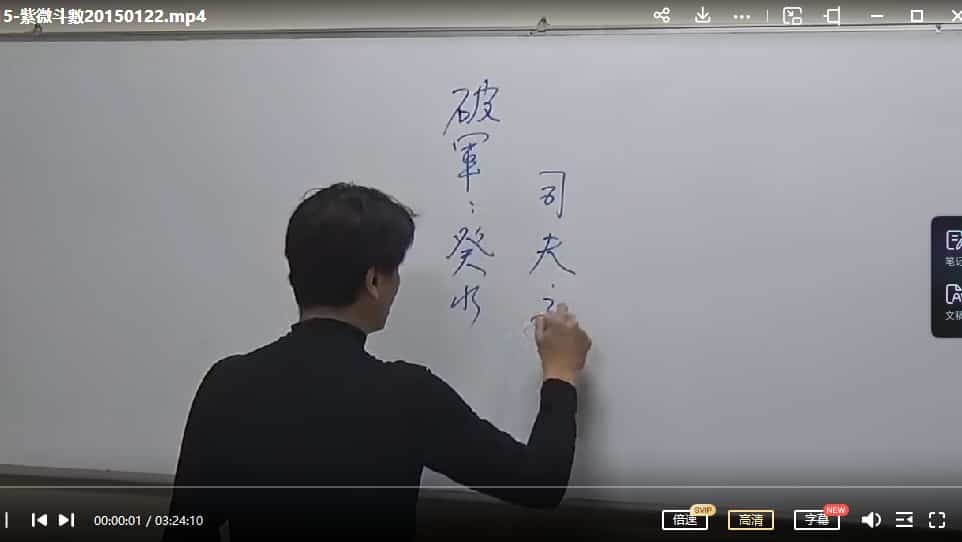 5-紫微斗數20150122.mp4
破軍：癸水
司夫
笔记
文稿
00:00:01 / 03:24:10
倍速
SVIP
高清
字幕
NEW